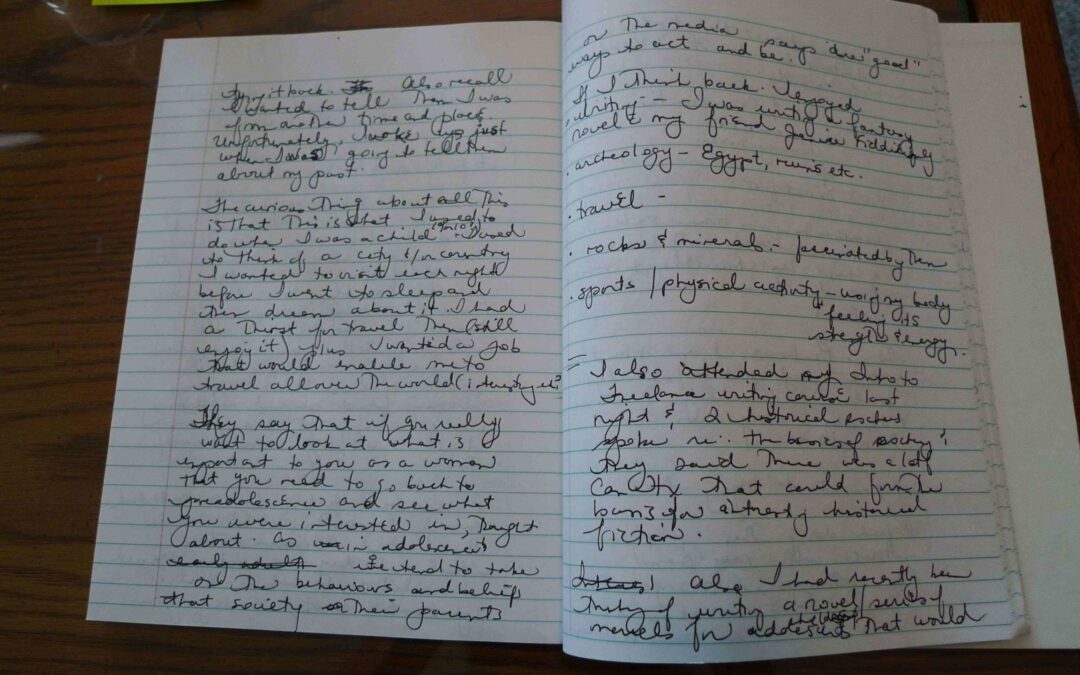 it back. Also recall
I wanted to tell them I was
from another time and place.
Unfortunately, I woke up just
when I was going to tell them
about my past.
The curious thing about all this
is that this is what I used to
do when I was a child I used
to think of a city &/or country
I wanted to visit each night
before I went to sleep and
then dream about it. I had
a thirst for travel then (still
enjoy it) plus I wanted a job
that would enable me to
travel all over the world (
They say that if you really
want to look at what is
important to you as a woman
that you need to go back to
preadolescence and see what
you were interested in, thought
about. As in adolescence
early adult we tend to take
on the behaviours and beliefs
that society or their parents
or the media says are "good"
ways to act and be.
If I think back. I enjoyed
writing - I was writing a fantasy
novel & my friend
archeology - Egypt, ruins etc.
travel -
rocks & minerals - fascinated by them
sports / physical activity - my body
feeling its
strength & energy.
I also attended Intro to
Freelance writing course last
night & 2 historical
spoke re: the basics of
they said there was a lot
that could form the
basis for already historical
fiction.
Also I had recently been
thinking of writing a novel / series of
for that would